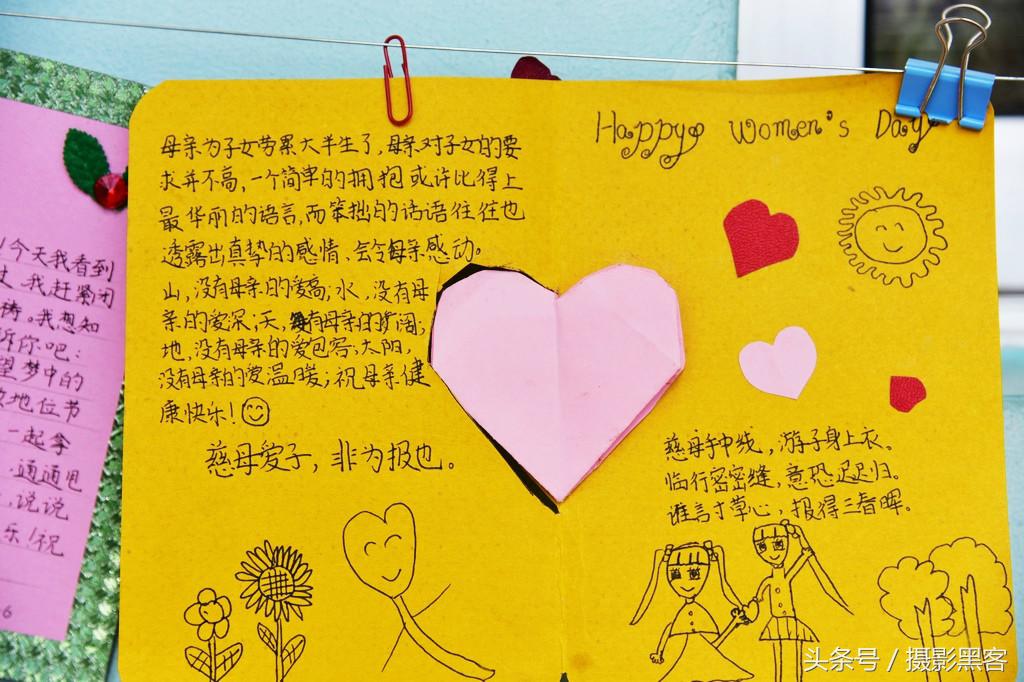 母亲为子女劳累大半生了,母亲对子女的要
求并不高,一个简单的拥抱或许比得上
最华丽的语言,而笨拙的话语往往也
透露出真挚的感情、会令母亲感动。
山,没有母亲的爱高;水,没有母
亲的爱深;天,没有母亲的爱广阔;
地,没有母亲的爱包容;太阳,
没有母亲的爱温暖;祝母亲健
康快乐!
慈母爱子,非为报也。
Happy Women's Day
慈母手中线,游子身上衣。
临行密密缝,意恐迟迟归。
谁言寸草心,报得三春晖。
今天我看到
我赶紧闭
祷。我想知
诉你吧:
望梦中的
地位节
一起拿
,通通甩
,说说
乐!祝
6
头条号 / 摄影黑客